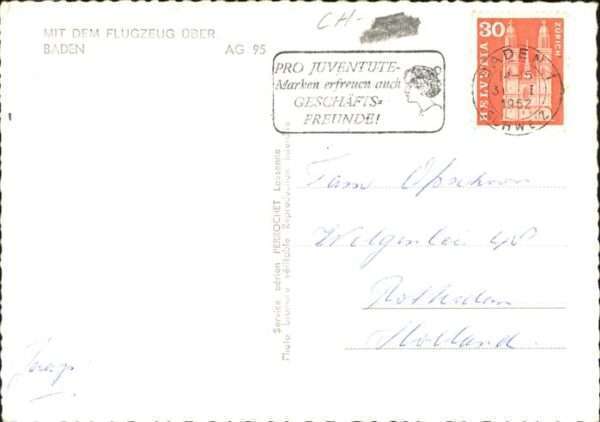 CH-
MIT DEM FLUGZEUG ÜBER
BADEN AG 95
PRO JUVENTUTE-
Marken erfreuen auch
GESCHÄFTS-
FREUNDE!
30
HELVETIA
ZÜRICH
BADEN 1
SCHWEIZ
Service aérien PERROCHET Lausanne
Photo bromure véritable Reproduction interdite
Fam. Opschoor
48
Rotterdam
Holland.